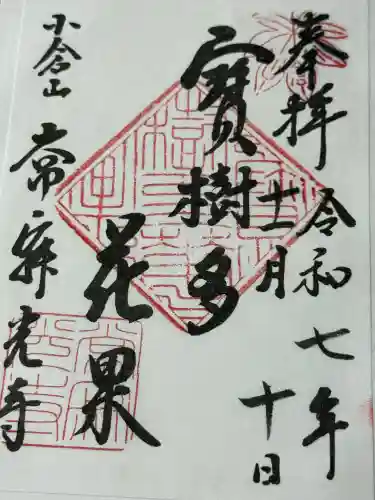 奉拝
令和七年
十一月
十日
寳樹多
花果
小倉山
常寂光寺